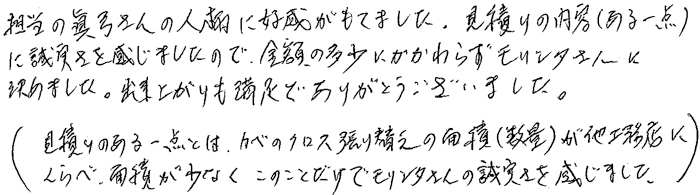 担当の眞弓さんの人柄に好感がもてました。見積りの内容(ある一点)
に誠実さを感じましたので、金額の多少にかかわらずモリシタさんに
決めました。出来上がりも満足でありがとうございました。
(見積りのある一点とは、カベのクロス張り替えの面積(数量)が他工務店に
くらべ、面積が少なく このことだけでモリシタさんの誠実さを感じました)